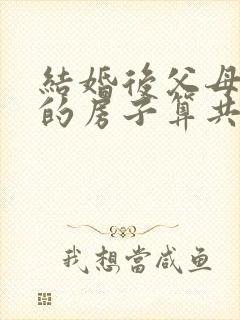 結婚後父母
的房子算共
我想當咸鱼